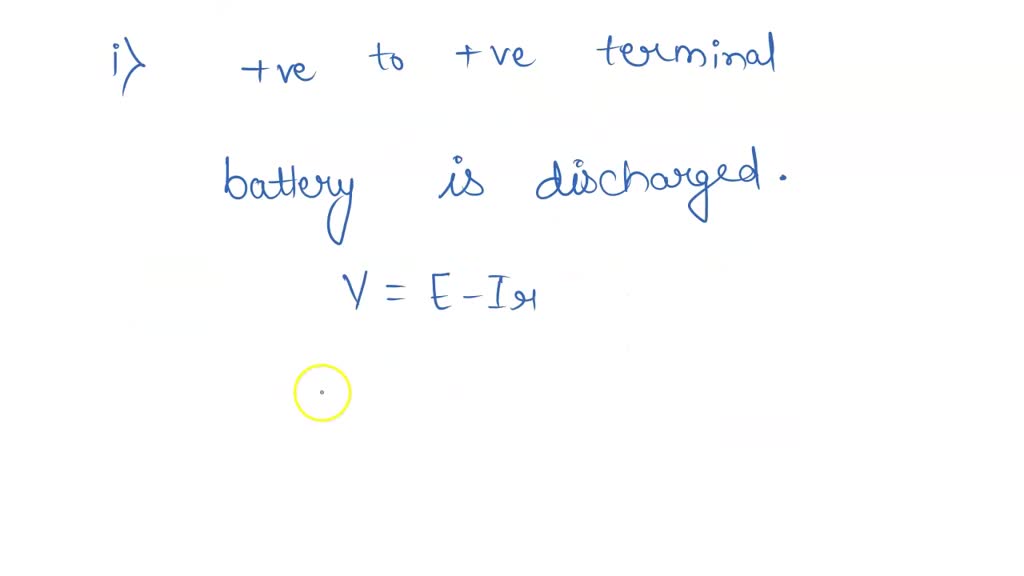 i) +ve to +ve terminal
battery is discharged.
V = E - Ir